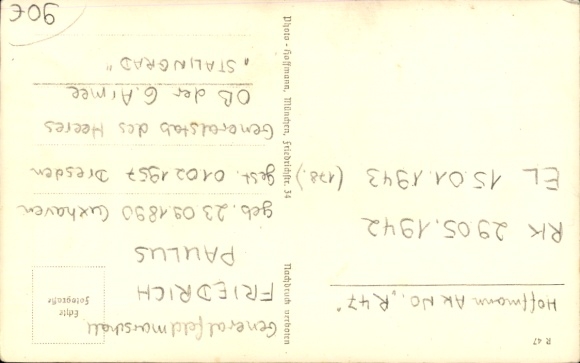 R 47
Hoffmann AK NO. "R 47"
RK 29.05.1942
EL 15.01.1943 (178.)
Nachdruck verboten
Photo-Hoffmann, München, Friedrichstr. 34
Echte
Fotografie
Generalfeldmarschall
FRIEDRICH
PAULUS
geb. 23.09.1890 Cuxhaven
gest. 01.02.1957 Dresden
Generalstab des Heeres
OB der 6. Armee
"STALINGRAD"
90€